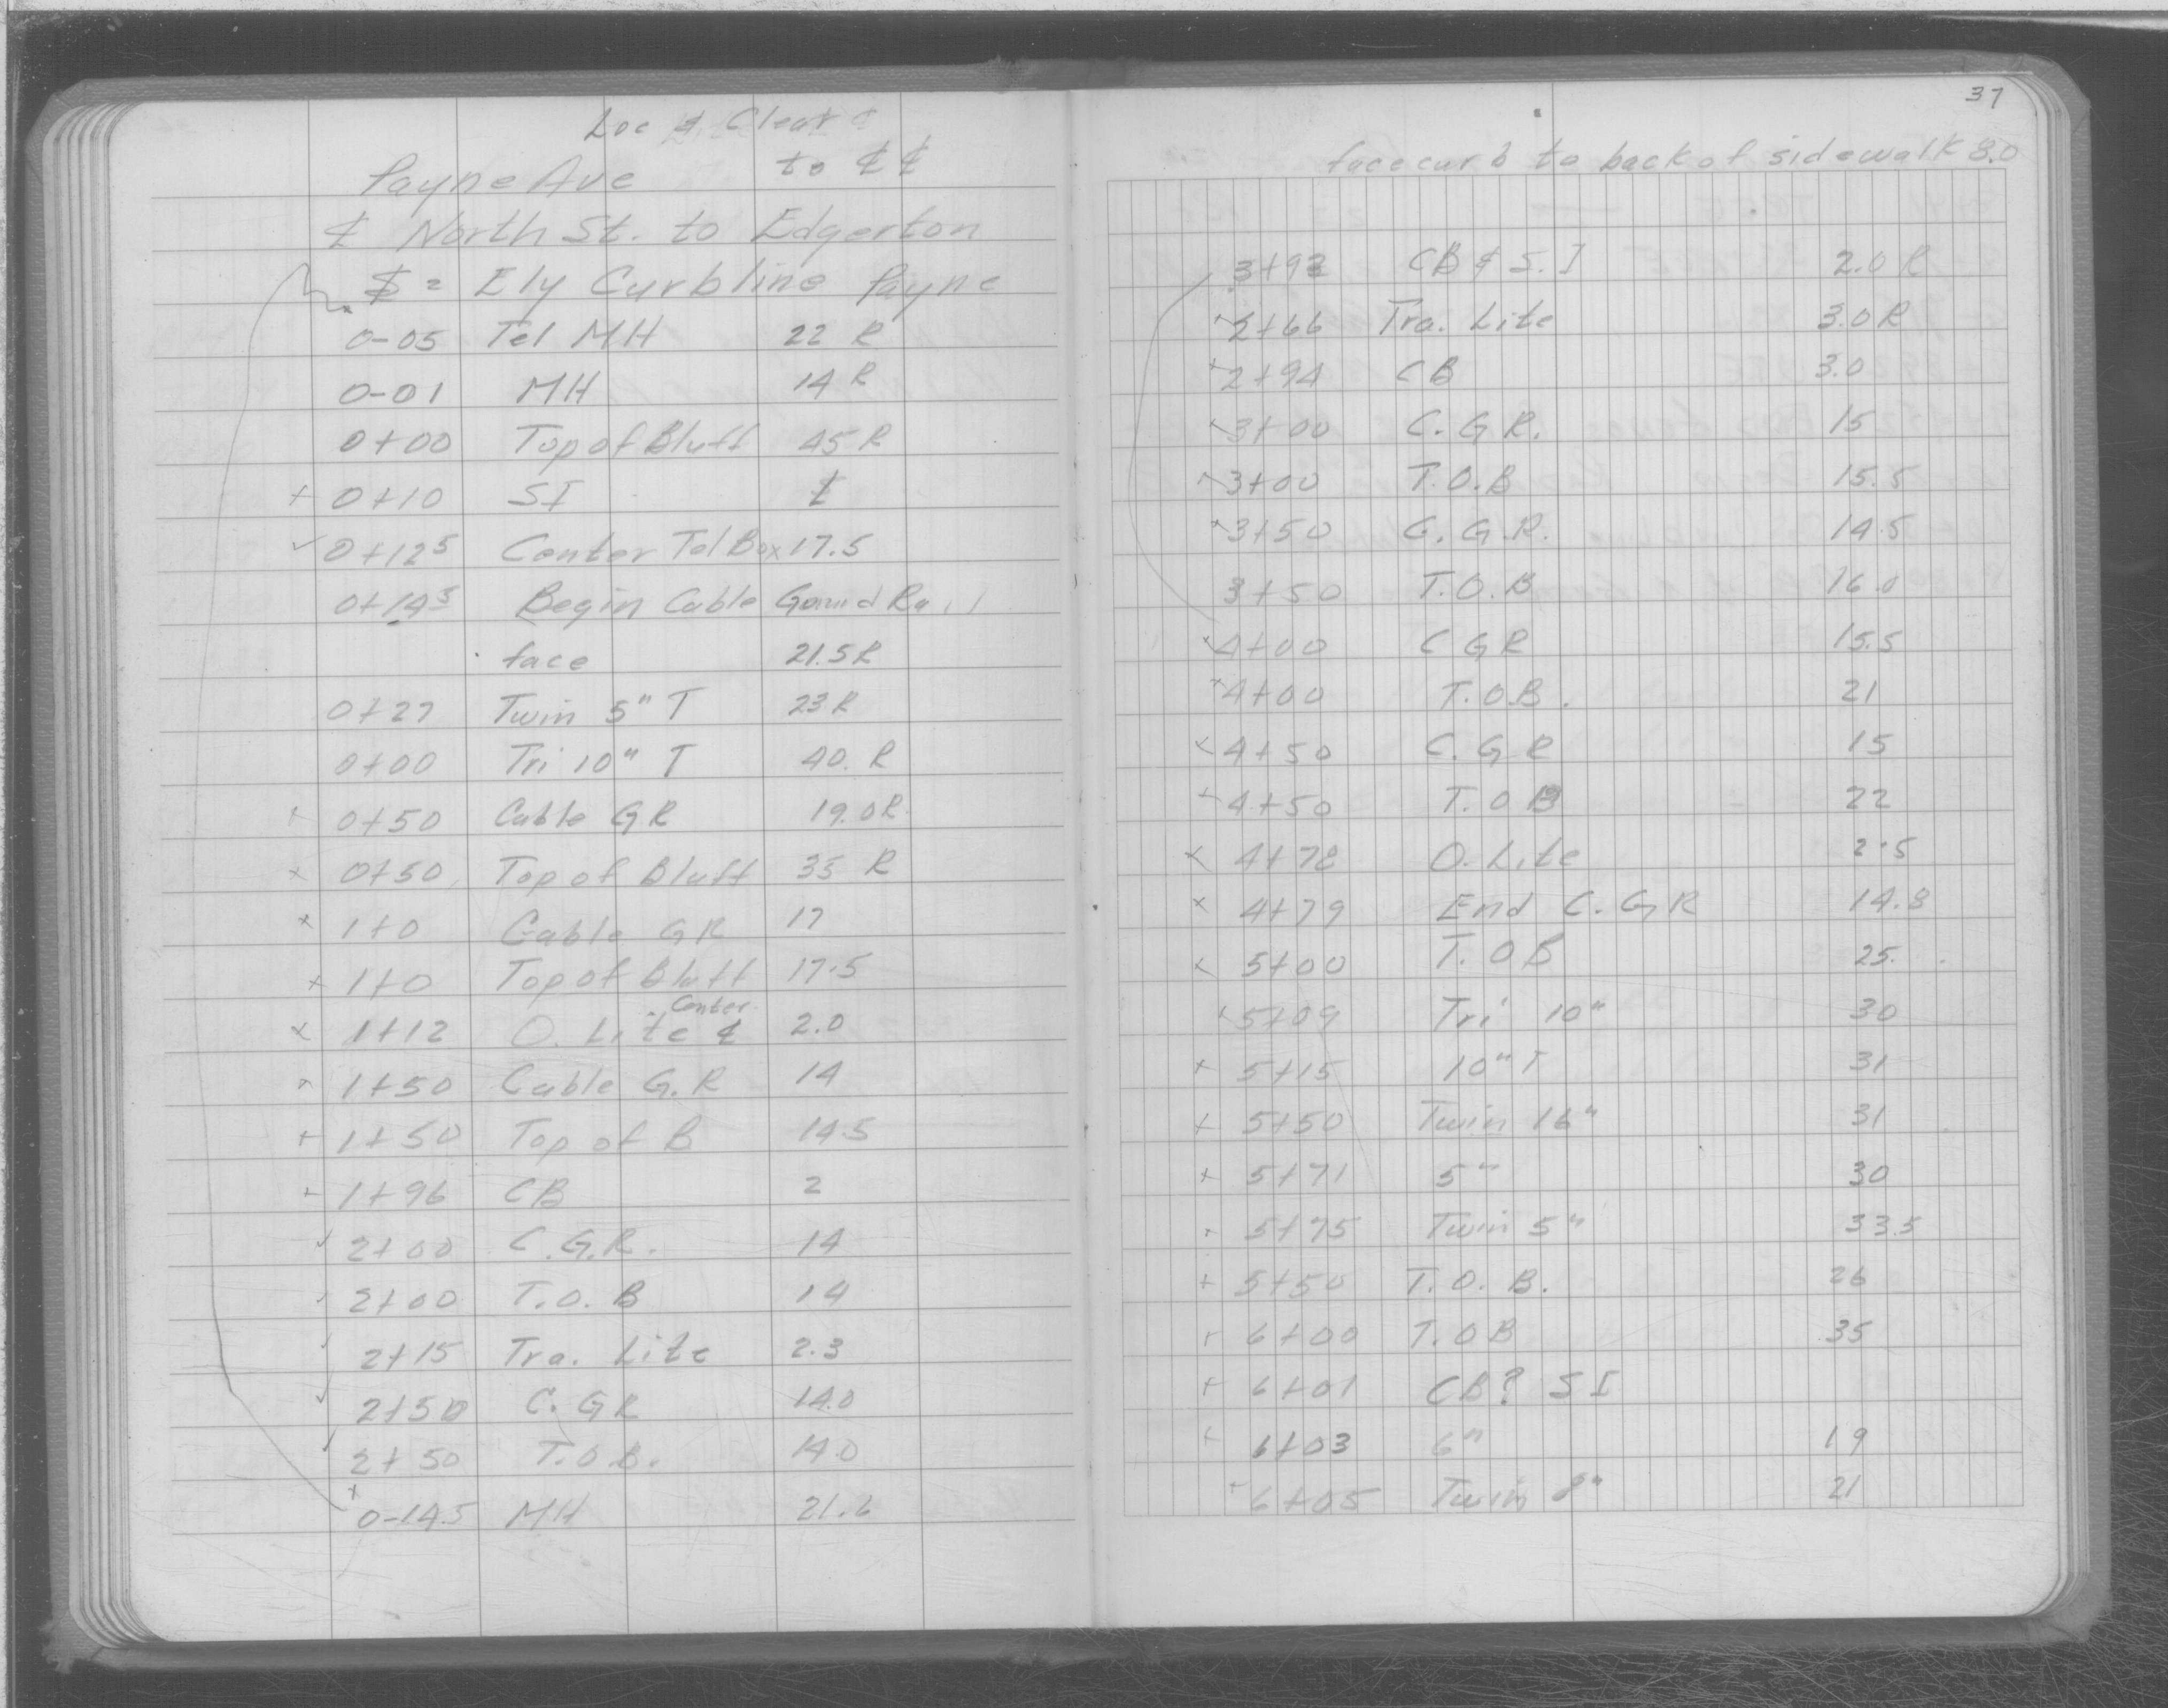 Loc & Clear
Payne Ave to ℄ ℄
℄ North St. to Edgerton
℄ = Ely Curbline Payne
0-05 Tel MH 22 R
0-01 MH 14 R
0+00 Top of Bluff 45 R
+ 0+10 SI ℄
✓ 0+12⁵ Center Tel Box 17.5
0+14⁵ Begin Cable Gaurd Rail
face 21.5R
0+27 Twin 5" T 23 R
0+00 Tri 10" T 40. R
+ 0+50 Cable GR 19.0R
x 0+50 Top of Bluff 35 R
x 1+0 Cable GR 17
+ 1+0 Top of Bluff 17.5
Center
x 1+12 O. Lite ℄ 2.0
x 1+50 Cable G.R 14
+ 1+50 Top of B 14.5
+ 1+96 CB 2
✓ 2+00 C.G.R. 14
✓ 2+00 T.O.B 14
✓ 2+15 Tra. Lite 2.3
✓ 2+50 C. GR 14.0
✓ 2+50 T.O.B. 14.0
x 0-14.5 MH 21.6
37
face curb to back of sidewalk 8.0
3+93 CB & S.I 2.0 R
2+66 Tra. Lite 3.0 R
+ 2+94 CB 3.0
3+00 C.G.R. 15
3+00 T.O.B 15.5
x 3+50 C.G.R. 14.5
3+50 T.O.B 16.0
x 4+00 C G R 15.5
x 4+00 T.O.B. 21
x 4+50 C.G R 15
+ 4+50 T.O B 22
x 4+78 O. Lite 2.5
x 4+79 End C.GR 14.8
x 5+00 T.OB 25.
+ 5+09 Tri 10" 30
+ 5+15 10" T 31
+ 5+50 Twin 16" 31
+ 5+71 5" 30
+ 5+75 Twin 5" 33.5
+ 5+50 T.O.B. 26
+ 6+00 T.OB 35
+ 6+01 CB? SI
+ 6+03 6" 19
+ 6+05 Twin 8" 21